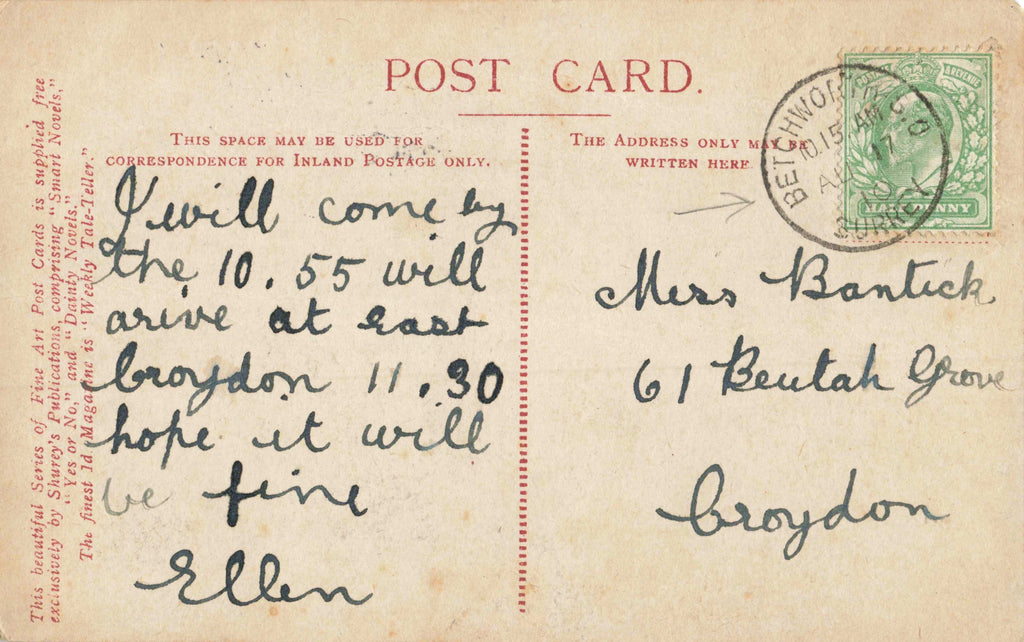 POST CARD.
THIS SPACE MAY BE USED FOR
CORRESPONDENCE FOR INLAND POSTAGE ONLY.
THE ADDRESS ONLY MAY BE
WRITTEN HERE
This beautiful Series of Fine Art Post Cards is supplied free
exclusively by Shurey's Publications, comprising "Smart Novels,"
"Yes or No," and "Dainty Novels."
The finest 1d Magazine is "Weekly Tale-Teller."
I will come by
the 10.55 will
arive at east
Croydon 11.30
hope it will
be fine
Ellen
BETCHWORTH S.O
10.15 AM
17
10
SURREY
& REVENUE
HALFPENNY
Miss Bantick
61 Beulah Grove
Croydon